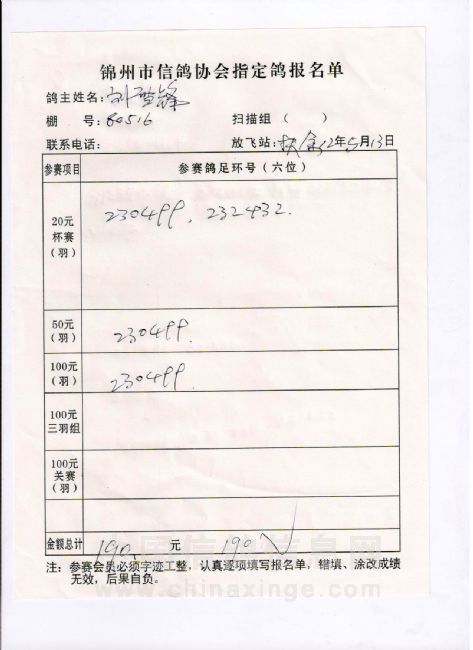 锦州市信鸽协会指定鸽报名单
鸽主姓名：刘
棚 号：80516 扫描组（ ）
联系电话： 放飞站：扶余12年5月13日
参赛项目 参赛鸽足环号（六位）
20元
杯赛
（羽） 230499，232432.
50元
（羽） 230499.
100元
（羽） 230499.
100元
三羽组
100元
关赛
（羽）
金额总计 190 元 190
注：参赛会员必须字迹工整，认真逐项填写报名单，错填、涂改成绩
无效，后果自负。
中国信鸽信息网
www.chinaxinge.com